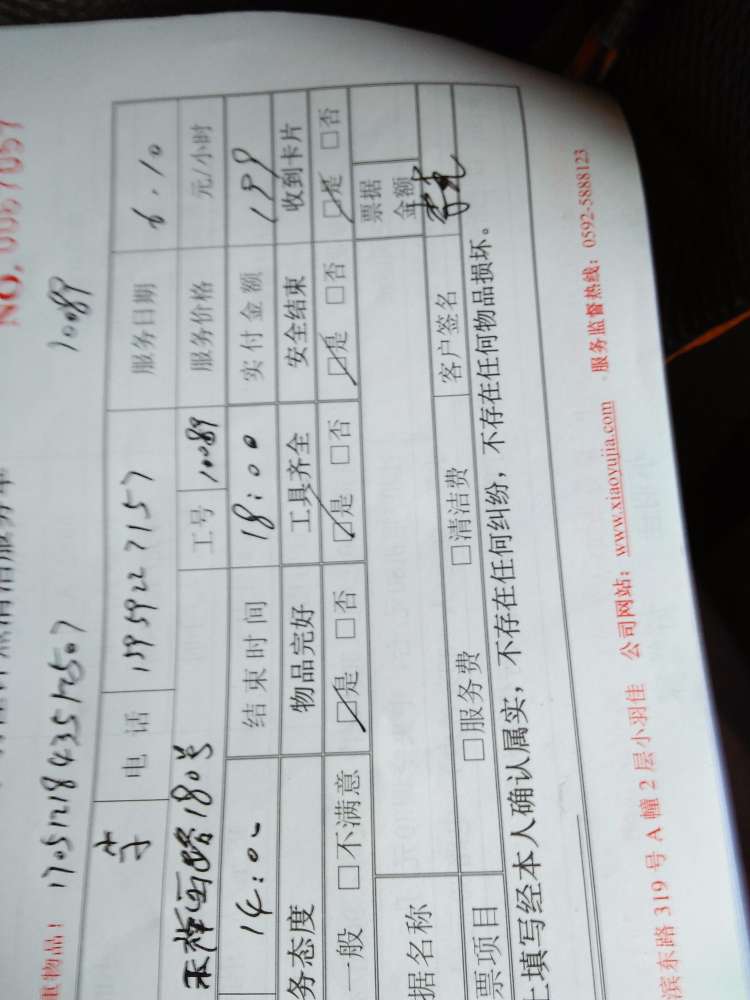 NO. 0067057
重物品： 1705121843512507 10089
电 话 15959227157 服务日期 6.10
180号 工号 10089 服务价格 元/小时
14:00 结束时间 18:00 实付金额 199
务态度 物品完好 工具齐全 安全结束 收到卡片
一般 □不满意 □是 □否 □是 □否 □是 □否 □是 □否
据名称 票据金额
票项目 □服务费 □清洁费 客户签名
上填写经本人确认属实，不存在任何纠纷，不存在任何物品损坏。
滨东路 319 号 A 幢 2 层小羽佳 公司网站：www.xiaoyujia.com 服务监督热线：0592-5888123